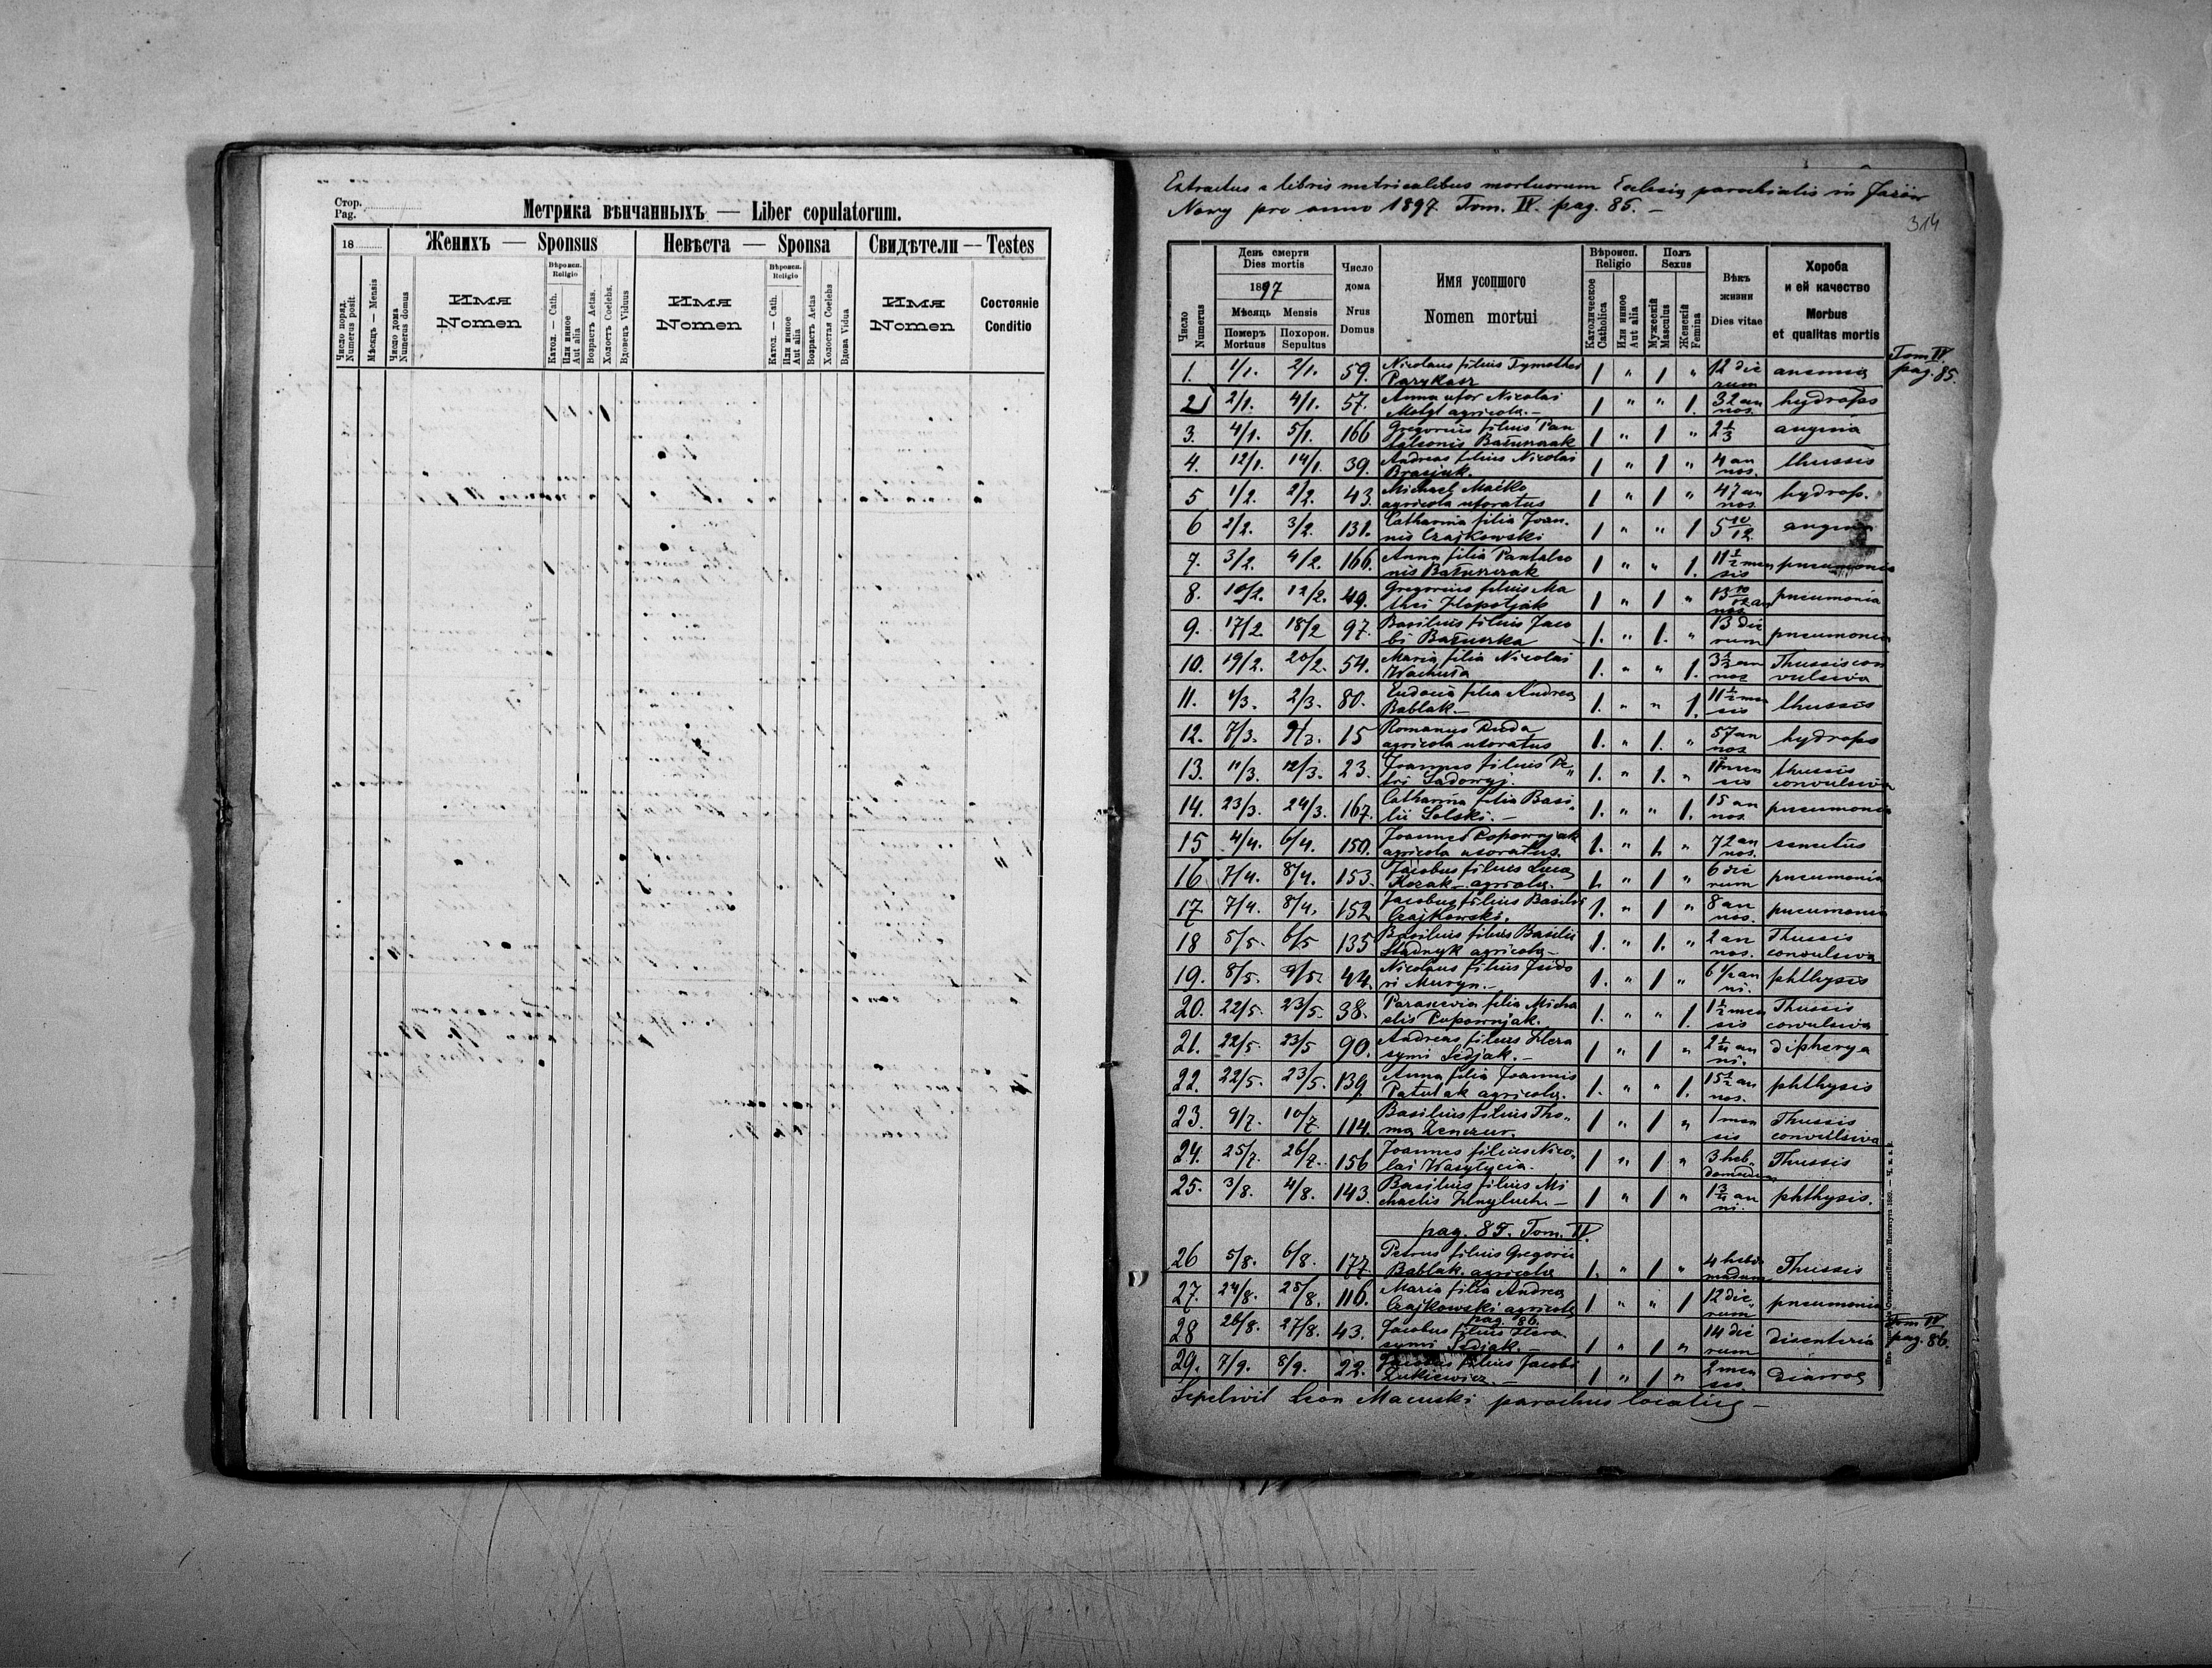 Стор.
Pag.
Метрика вѣнчанныхъ — Liber copulatorum.
18
Женихъ — Sponsus
Невѣста — Sponsa
Свидѣтели — Testes
Число поряд.
Numerus posit.
Мѣсяцъ — Mensis
Число дома
Numerus domus
Имя
Nomen
Вѣроисп.
Religio
Катол. — Cath.
Или инное
Aut alia
Возрастъ Aetas.
Холостъ Coelebs.
Вдовецъ Viduus
Имя
Nomen
Вѣроисп.
Religio
Катол. — Cath.
Или инное
Aut alia
Возрастъ Aetas
Холостая Coelebs
Вдова Vidua
Имя
Nomen
Состояніе
Conditio
Extractus e libris metricalibus mortuorum Ecclesia parochialis in Jazów
Nowy pro anno 1897. Tom. IV. pag. 85. —
314
Число
Numerus
День смерти
Dies mortis
1897
Мѣсяць Mensis
Померъ
Mortuus
Похорон.
Sepultus
Число
дома
Nrus
Domus
Имя усопшого
Nomen mortui
Вѣроисп.
Religio
Католическое
Catholica
Или инное
Aut alia
Полъ
Sexus
Мужескій
Masculus
Женскій
Femina
Вѣкъ
жизни
Dies vitae
Хороба
и ей качество
Morbus
et qualitas mortis
Tom IV.
pag. 85.
1. 1/1. 2/1. 59. Nicolaus filius Tymothei 1 " 1 " 12 die
rum
2 2/1. 4/1. 57. Anna uxor Nicolai 1 " " 1. 32 an hydrops
agricola. — nos.
3. 4/1. 5/1. 166 Gregorius filius Pan 1 " 1 " 2 1/3 angina
taleonis
4. 12/1. 14/1. 39. Andreas filius Nicolai 1 " 1 " 4 an thussis
Brasjuk. nos.
5 1/2. 2/2. 43. Michael Maćko 1 " 1 " 47 an hydrop.
agricola uxoratus nos.
6 2/2. 3/2. 131. Catharina filia Joan- 1 " " 1 5 10/12 angina
nis Czajkowski
7. 3/2. 4/2. 166. Anna filia Pantaleo 1 " " 1. 11 1/2 men pneumonia
nis sis
8. 10/2. 12/2. 49. Gregorius filius Ma 1 " 1 " 13 10/12 an pneumonia
thei nos
9. 17/2 18/2 97. Basilius filius Jaco 1. " 1. " 13 die pneumonia
bi rum
10. 19/2. 20/2. 54. Maria filia Nicolai 1. " " 1. 3 1/2 an Thussis con
nos vulsiva
11. 1/3. 2/3. 80. Eudocia filia Andrea 1. " " 1. 11 1/2 men thussis
Bablak. — sis
12. 7/3. 9/3. 15 Romanus Duda 1. " 1. " 57 an hydrops
agricola uxoratus nos
13. 11/3. 12/3. 23. Joannes filius Pe 1. " 1. " 11 men thussis
tri Sadowyj. sis convulsiva
14. 23/3. 24/3. 167. Catharina filia Basi- 1. " " 1. 15 an pneumonia
lii Solski. — nos.
15 4/4. 6/4. 150. Joannes Popownjak 1. " 1. " 72 an senectus
agricola uxoratus. nos.
16 7/4. 8/4. 153. Jacobus filius Luca 1. " 1 " 6 die pneumonia
Kozak — agricola. rum
17 7/4. 8/4. 152 Jacobus filius Basilii 1. " 1 " 8 an pneumonia
Czajkowski. nos.
18 5/5. 6/5 135 Basilius filius Basilii 1. " 1. " 2 an Thussis
Stadnyk agricola — nos. convulsiva
19. 8/5. 9/5. 44. Nicolaus filius Isido 1. " 1 " 6 1/2 an phthysis
ri Muryn. — ni.
20. 22/5. 23/5. 38. Parascevia filia Micha 1. " " 1. 1 1/2 men Thussis
elis Popownjak. sis convulsiva
21. 22/5. 23/5 90. Andreas filius Hera 1 " 1 " 2 1/4 an dipherya
symi Sedjak. — ni.
22. 22/5. 23/5. 139. Anna filia Joannis 1. " " 1. 15 1/2 an phthysis
agricola. nos.
23. 9/7. 10/7. 114. Basilius filius Tho- 1 " 1 " 1 men Thussis
ma sis convulsiva
24. 25/7. 26/7. 156 Joannes filius Nico- 1 " 1 " 3 heb- Thussis
lai Wasylycia. domadum
25. 3/8. 4/8. 143. Basilius filius Mi 1 " 1 " 1 3/4 an phthysis.
chaelis ni.
pag. 85. Tom. IV.
26 5/8. 6/8. 177. Petrus filius Gregorii 1. " 1 " 4 hebdo Thussis
Bablak. agricola madum
27. 24/8. 25/8. 116. Maria filia Andrea 1. " " 1 12 die pneumonia
Czajkowski agricola rum
pag. 86.
28 26/8. 27/8. 43. Jacobus filius Hera 1 " 1 " 14 die disenteria
symi Sedjak. — rum
Tom IV
pag. 86.
29. 7/9. 8/9. 22. Jacobus filius Jacobi 1 " 1 " 2 men
Lukiewicz. — ses.
Sepelivit Leon Macuski parochus localis —